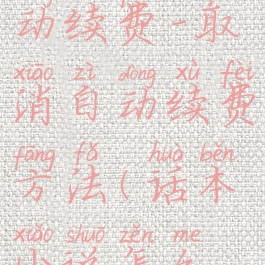 动续费-取
xiāo zì dòng xù fèi
消自动续费
fāng fǎ huà běn
方法(话本
xiǎo shuō zěn me
小说怎么